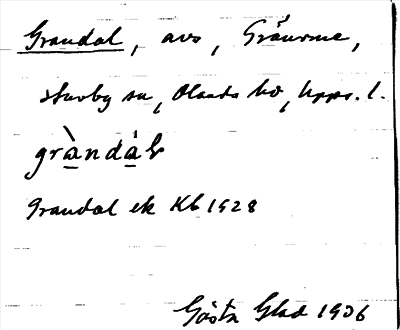 Grandal, avs, Gråurme,
Skuvby sn, Olands hd, Upps. l.
gràndàl
Grandal ek Kb 1928
Gösta Glad 1936